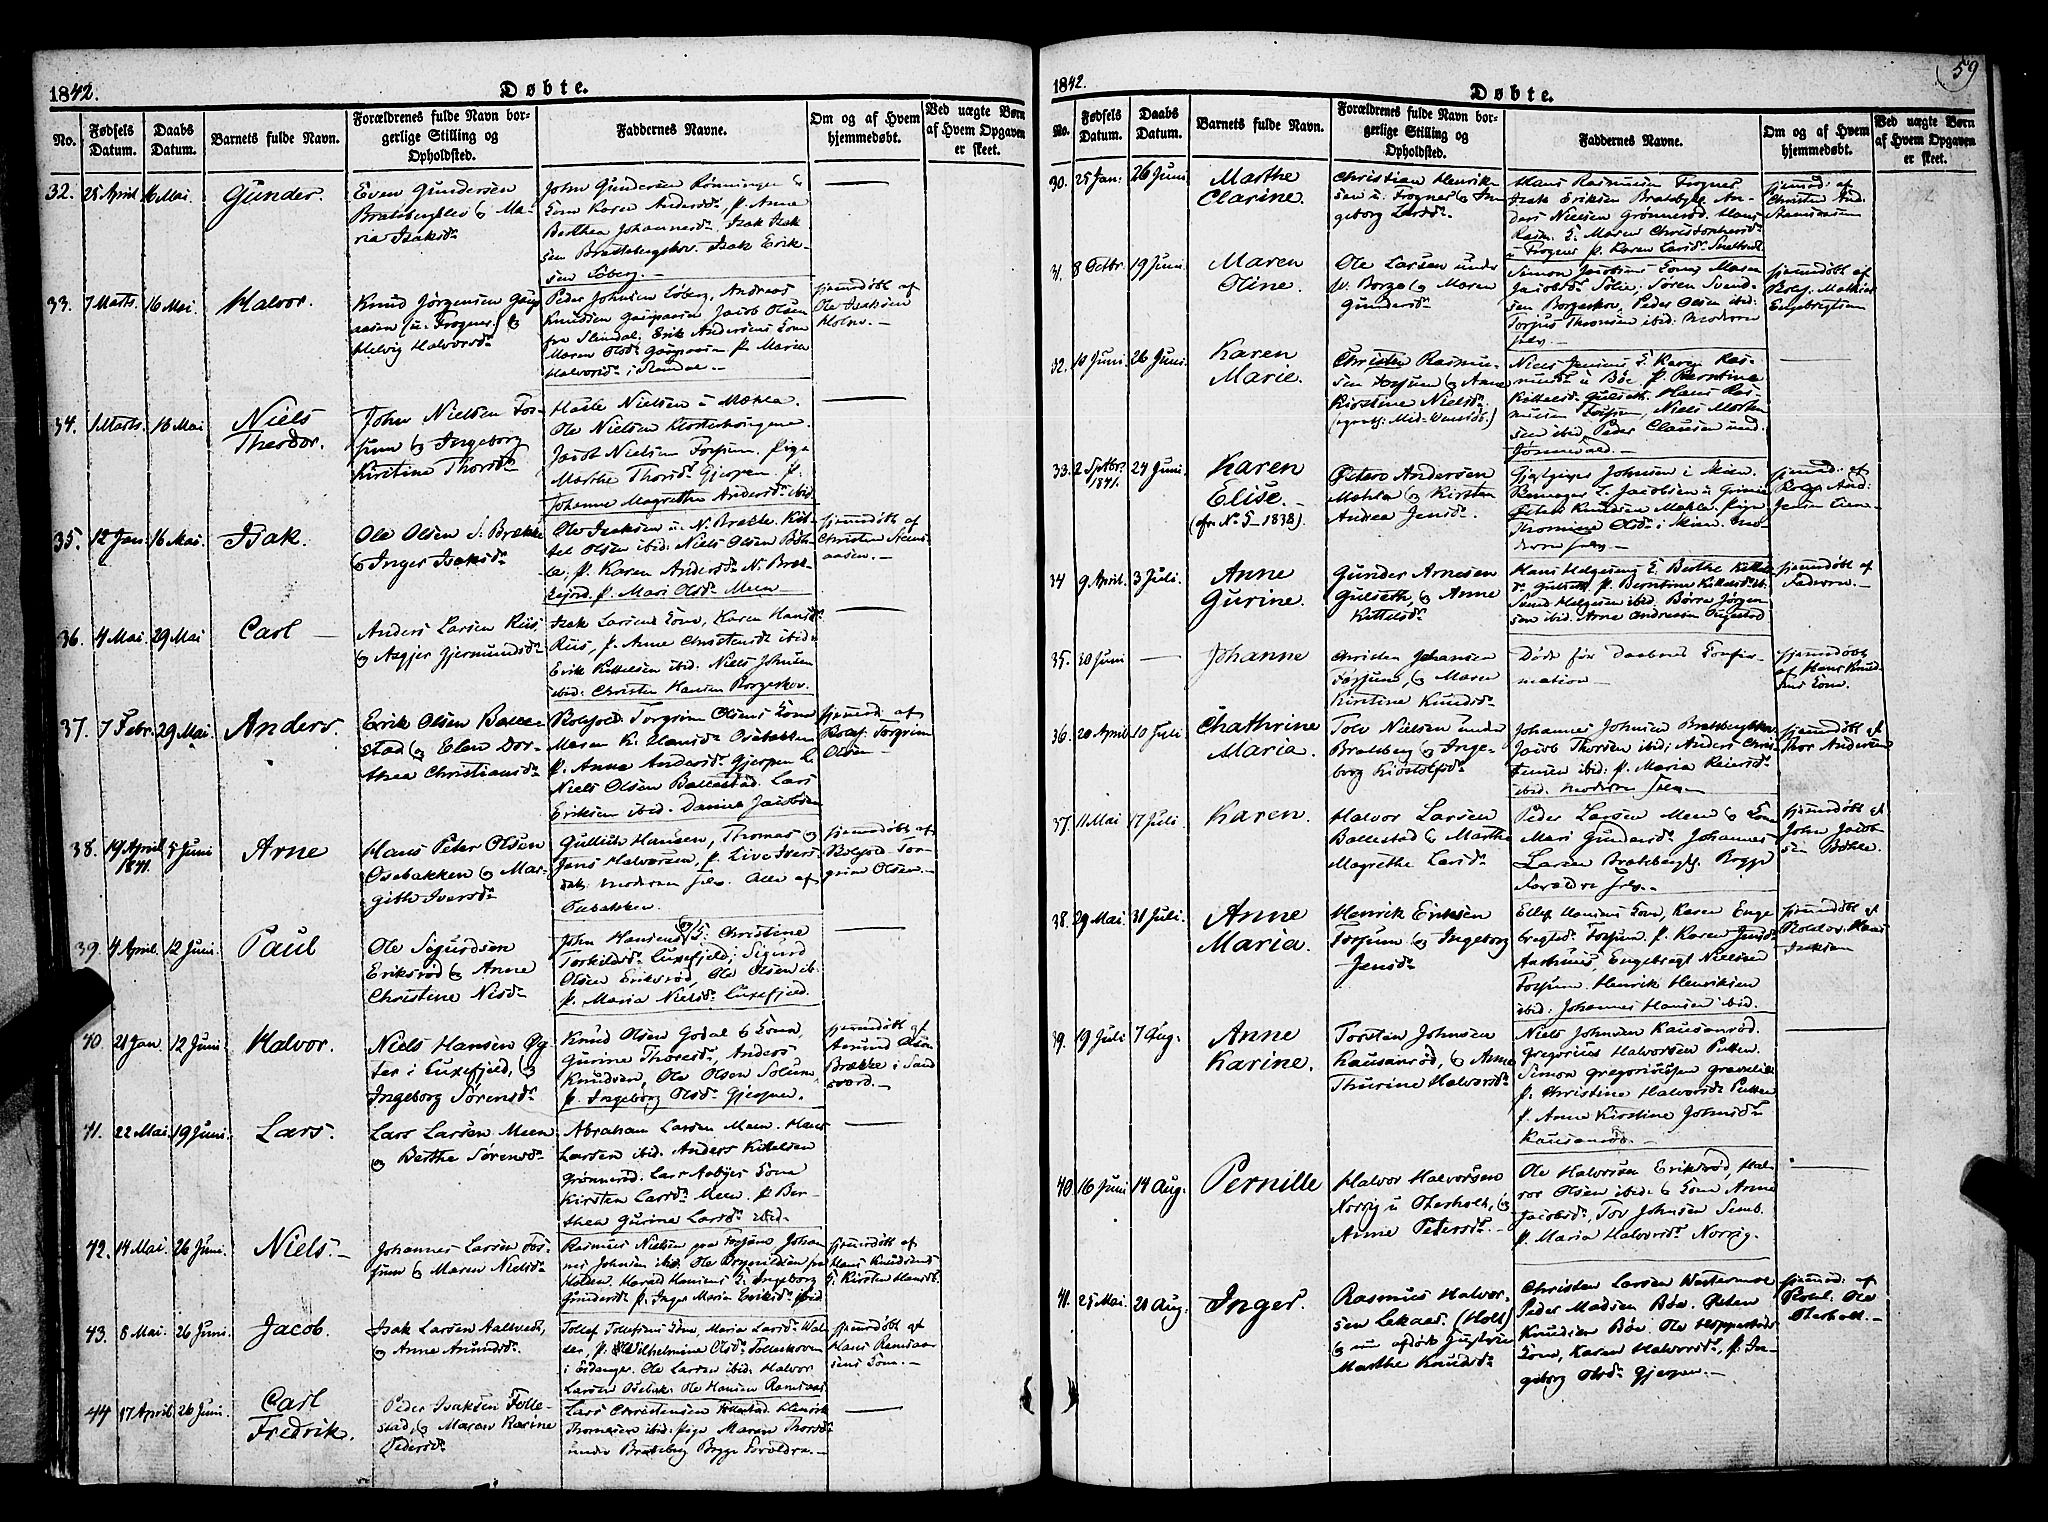 1842.
Døbte.
No.
Fødsels Datum.
Daabs Datum.
Barnets fulde Navn.
Forældrenes fulde Navn bor-
gerlige Stilling og
Opholdsted.
Faddernes Navne.
Om og af Hvem
hjemmedøbt.
Ved uægte Børn
af Hvem Opgaven
er skeet.
32. 25 April 16 Mai. Gunder.
Even Gundersen
Bratsbergklev & Ma-
ria Isaksdr
John Gundersen Rønningen &
Kone Karen Andersdr. P. Anne
Berthea Johannesdr. Isak Isak
sen Bratsbergskov. Isak Erik-
sen Løberg.
33. 7 Marts. 16 Mai. Halvor.
Knud Jørgensen Gaup
aasen (u. Frogner) &
Helvig Halvorsdr
Peder Johnsen Løberg, Andreas
Knudsen Gaupaasen Jacob Olsen
fra Slemdal; Erik Andersens Kone
Maren Olsdr. Gaupaasen P. Maria
Halvorsdr. i Slemdal.
hjemmdøbt af
Ole Isaksen
34. 1 Marts. 16 Mai Niels
Theodor.
John Nielsen Fos-
sum & Ingeborg
Kirstine Thorsdr
Nielsen u Mæhla.
Ole Nielsen
Jacob Nielsen Fossum. Pige
Marthe Thorsdr. Gjerpen. P.
Johanne Magrethe Andersdr. ibid.
35. 12 Jan. 16 Mai. Isak.
Ole Olsen S. Brække
& Inger Isaksdr
Ole Isaksen u. N. Brække. Kit-
tel Olsen ibid: Niels Olsen Bøh-
le; P. Karen Andersdr. N. Bræk-
P. Mari Olsdr. Meen
hjemmdøbt af
Christen
36. 4 Mai. 29 Mai Carl
Anders Larsen Riis
& Aagjer Gjermundsdr
Isak Larsens Kone, Karen Hansdr.
Riis, P. Anne Christensdr. ibid.
Erik Kittelsen ibid. Niels Johnsen
ibid. Christen Hansen Borgeskov.
37. 7 Febr. 29 Mai. Anders.
Erik Olsen Balle-
stad & Elen Dor-
thea Christiansdr
Torgrim Olsens Kone
Maren K. Hansdr. Osebakken
P. Anne Andersdr. Gjerpen L.
Niels Olsen Ballestad. Lars
Eriksen ibid. Daniel Jacobsen
hjemmd. af
Torgrim
Olsen
38. 19 April 1841. 5 Juni Arne
Hans Peter Olsen
Osebakken & Mar-
gith Iversdr
Gullich Hansen, Thomas &
Jens Halvorsen, P. Live Ivers
datr. Moderen selv. Alle af
Osebakken.
hjemmdøbt af
Tor-
grim Olsen.
39. 4 April. 12 Juni. Paul
Ole Sigurdsen
Eriksrød & Anne
Christine Nilsdr
John Hansens Christine
Torkildsdr. Luxefjeld; Sigurd
Olsen Eriksrød, Ole Olsen ib:
P. Maria Nielsdr. Luxefjeld.
40. 21 Jan. 12 Juni. Halvor.
Niels Hansen Øg
ter i Luxefjeld, &
Ingeborg Sørensdr.
Knud Olsen Godal & Kone
Gurine Thoresdr, Anders
Knudsen, Ole Olsen Solum.
P. Ingeborg Olsdr. Gjerpen.
hjemmdøbt af
Amund Olsen
Brække i Sand
41. 22 Mai. 19 Juni. Lars.
Lars Larsen Meen
& Berthe Sørensdr
Abraham Larsen Meen. Hans
Larsen ibid. Anders Kittelsen
Grønnerød. Lars Aabyes Kone
Kirsten Larsdr. Meen. P. Ber-
thea Gurine Larsdr. ibid.
42. 14 Mai 26 Juni. Niels.
Johannes Larsen Fos-
sum & Maren Nielsdr
Rasmus Nielsen paa Fossum Johan
nes Johnsen ibid. Ole Brynildsen fra
Holden. Harald Hansens K. Ingeborg
Gundersdr. P. Inger Maria Eriksdr. ibid
hjemmdøbt af
Hans Knudsens
K. Kirsten Hansdr.
43. 8 Mai. 26 Juni. Jacob.
Isak Larsen Aaltvedt,
& Anne Amundsdr.
Tollef Tollefsens Kone, Maria Larsdr. Val-
ler, P. Wilhelmine Olsdr. Follaskoven
i Eidanger. Ole Larsen ibid. Halvor
Larsen Osebak. Ole Hansen Ramsaas.
hjemmdøbt af
Hans Ramsaa-
sens Kone.
44 17 April. 26 Juni. Carl
Fredrik.
Peder Isaksen Folle-
stad, & Maren Karine
Pedersdr.
Lars Christensen Follestad. Henrik
Thomasen ibid. Pige Maren Thorsdr.
under Bratsberg Begge Forældre.
1842.
Døbte.
59
No.
Fødsels Datum.
Daabs Datum.
Barnets fulde Navn.
Forældrenes fulde Navn bor-
gerlige Stilling og
Opholdsted.
Faddernes Navne.
Om og af Hvem
hjemmedøbt.
Ved uægte Børn
af Hvem Opgaven
er skeet.
30. 25 Jan. 26 Juni Marthe
Clarine.
Christian Henrik-
sen u. Frogner & In
geborg Larsdr.
Hans Rasmusen Frogner
Isak Eriksen Bratsbgkl. An-
ders Nielsen Grønnerød. Hans
Rasm. K. Maren Christophersdr
u Frogner P. Karen Larsdr.
hjemmd. af
Christen And.
31. 8 Octbr. 19 Juni. Maren
Oline.
Ole Larsen under
N. Borge & Maren
Gundersdr.
Simon Jacobsens Kone Maren
Jacobsdr. Sølie, Søren Svend-
sen Borgeskov, Peder Olsen ibid.
Torjus Thomsen ibid. Moderen
selv.
hjemmdøbt af
Mathias
Engebregtsen
32. 10 Juni. 26 Juni. Karen
Marie.
Christen Rasmu-
sen Fossum & Anne
Kirstine Nielsdr.
Niels Jensens K. Karen Ras-
musdr. u Bøe P. Berntine
Kittelsdr. Gulseth. Hans Ras-
musen Fossum, Niels Morten
sen ibid. Peder Clausen und.
33. 2 Septbr. 1841. 24 Juni. Karen
Elise.
(cfr. No 5 1838).
Peter Andersen
Mæhla & Kirsten
Andrea Jensdr.
Gjestgiver Johnsen i Skien.
Jacobsen u Grinie
Peter Knudsen Mæhla, Pige
Thomine Olsdr. i Skien. Mo-
deren selv.
hjemmd. af
And.
34 9 April. 3 Juli. Anne
Gurine.
Gunder Arnesen
Gulseth, & Anne
Kittelsdr.
Hans Helgesens K. Berthe Kittels
dr. Gulseth, P. Berntine Kittelsdr. ib.
Svend Helgesen ibid. Børre Jørgen
sen ibid. Arne Andresen
hjemmdøbt af
Faderen.
35. 20 Juni Johanne
Christen Johansen
Fossum, & Maren
Kirstine Knudsdr.
Døde før Daabens Confir-
mation
hjemmdøbt
af Hans Knud
sens Kone.
36. 20 April 10 Juli. Chathrine
Maria.
Tolv Nielsen under
Bratsberg & Inge-
borg Kistolfsdr.
Johannes Johnsen Bratsbergkl.
Jacob Thorsen ibid; Anders Chris
tensen ibid: P. Maria Reiersdr.
ibid. Moderen selv
hjemmdøbt af
Thor Andersen
37. 11 Mai 17 Juli. Karen.
Halvor Larsen
Ballestad & Marthe
Magrethe Larsdr.
Peder Larsen Meen & Kone
Mari Gundersdr. Johannes
Larsen Bratsbergkl. Begge
Forældre selv.
hjemmdøbt af
John Jacob-
sen Bøhle.
38. 29 Mai. 31 Juli. Anne
Maria.
Henrik Eriksen
Fossum & Ingeborg
Jensdr
Ellef Hansens Kone, Karen Enge
bregtsdr. Fossum. P. Karen Jensdr
Aarhuus, Engebregt Nielsen
Fossum. Henrik Henriksen
ibid. Johannes Hansen ibid.
hjemmdøbt af
Hans
Isaksen
39. 19 Juli 7 Aug. Anne
Karine.
Torsten Johnsen
Kausanrød, & Anne
Thurine Halvorsdr.
Niels Johnsen Kausanrød.
Gregorius Halvorsen Putten.
Simon Gregoriussen Gravelie
P. Christine Halvorsdr. Putten
P. Anne Kirstine Johnsdr.
Kausanrød.
40. 16 Juni 14 Aug. Pernille
Halvor Halvorsen
Norsig u Oterholt, &
Anne Petersdr.
Ole Halvorsen Eriksrød, Hal-
vor Olsen ibid. & Kone Anne
Jacobsdr, Tov Johnsen Semb.
P. Maria Halvorsdr. Norsig.
41. 25 Mai. 21 Aug. Inger.
Rasmus Halvor-
sen Lekaas (Holt)
& nu afdøde Hustrue
Marthe Knudsdr
Christen Larsen Westermoe
Peder Madsen Bøe. Peter
Knudsen Bøe. Ole Hoppestads
Kone, Karen Halvorsdr, P. In-
geborg Olsdr. Gjerpen.
hjemmd. af
Ole
Oterholt.